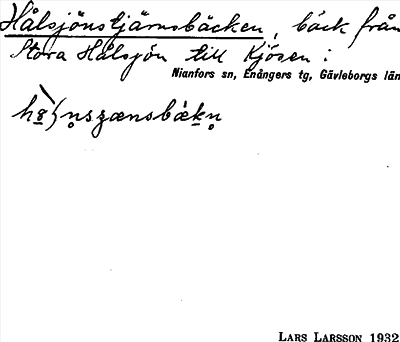 Hålsjönstjärnsbäcken, bäck från
Stora Hålsjön till Kjösen :
Nianfors sn, Enångers tg, Gävleborgs län
LARS LARSSON 1932